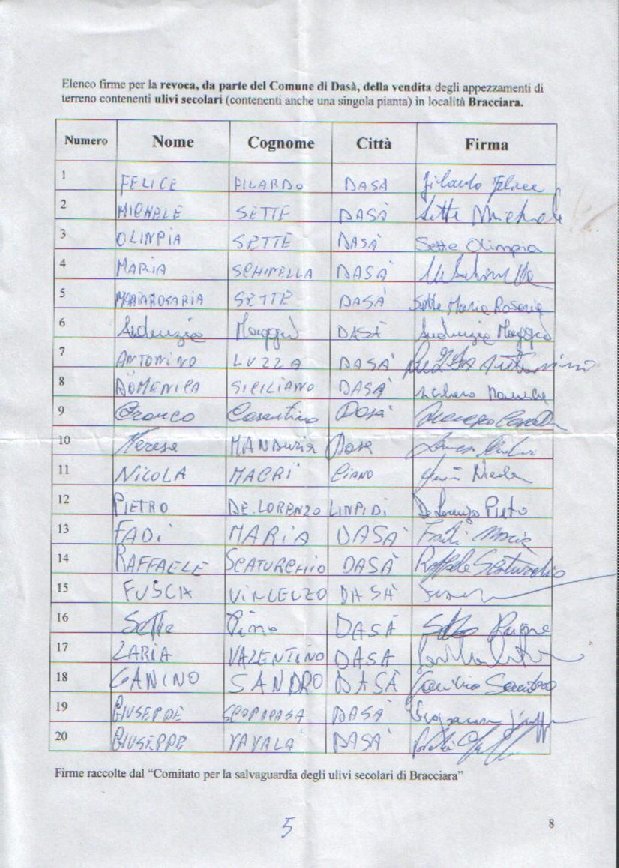 Elenco firme per la revoca, da parte del Comune di Dasà, della vendita degli appezzamenti di
terreno contenenti ulivi secolari (contenenti anche una singola pianta) in località Bracciara.
Numero Nome Cognome Città Firma
1 FELICE FILARDO DASÀ Filardo Felice
2 MICHELE SETTE DASÀ Sette Michele
3 OLIMPIA SETTE DASÀ Sette Olimpia
4 MARIA SCHINELLA DASÀ
5 MARIAROSARIA SETTE DASÀ Sette Maria Rosaria
6 DASÀ
7 ANTONINO LUZZA DASÀ
8 DOMENICA SICILIANO DASÀ
9 Cosentino Dasà
10 Teresa MANDUZIA Dasà
11 NICOLA MACRÌ
12 PIETRO DE.LORENZO LINPIDI De Lorenzo Pietro
13 FADI MARIA DASÀ Fadi Maria
14 RAFFAELE SCATURCHIO DASÀ Raffaele Scaturchio
15 FUSCIA VINCENZO DASÀ
16 Sette DASÀ
17 ZARIA VALENTINO DASÀ
18 GANINO SANDRO DASÀ Ganino Sandro
19 GIUSEPPE DASÀ
20 GIUSEPPE DASÀ
Firme raccolte dal “Comitato per la salvaguardia degli ulivi secolari di Bracciara”
5
8